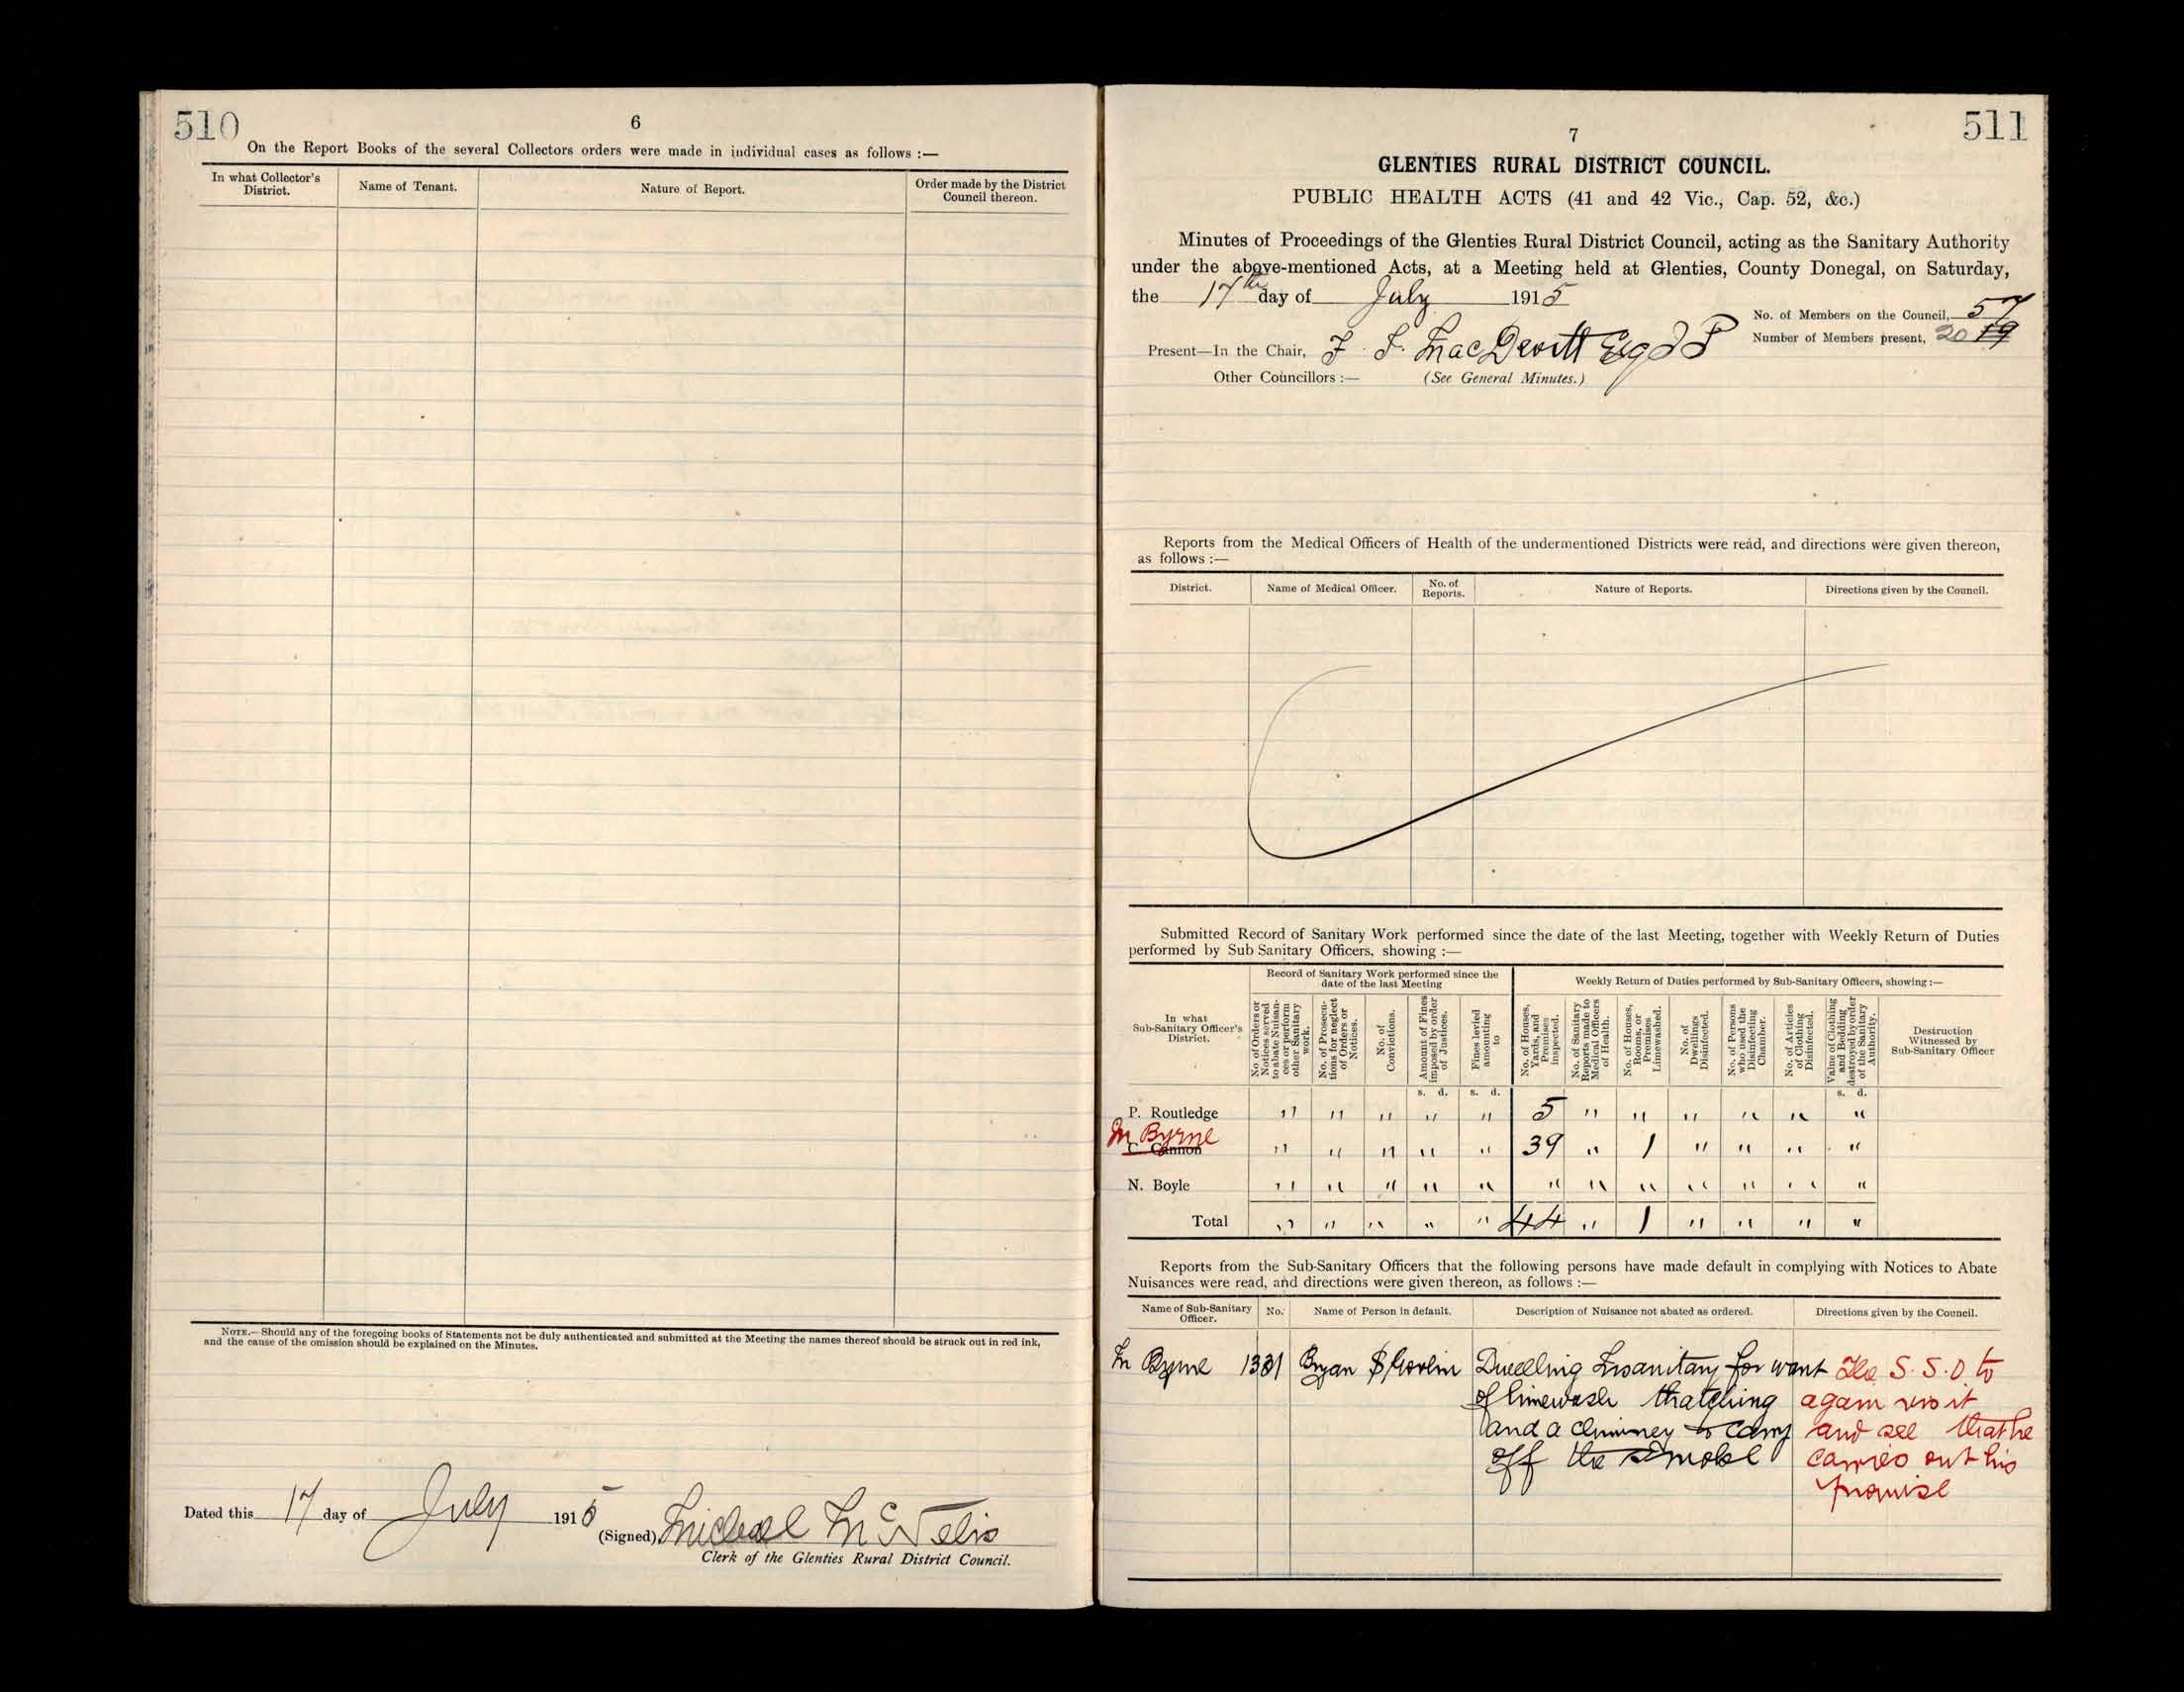 510
6
On the Report Books of the several Collectors orders were made in individual cases as follows :—
In what Collector's District.
Name of Tenant.
Nature of Report.
Order made by the District Council thereon.
NOTE.—Should any of the foregoing books of Statements not be duly authenticated and submitted at the Meeting the names thereof should be struck out in red ink,
and the cause of the omission should be explained on the Minutes.
Dated this 17 day of July 1915
(Signed) Michael McNelis
Clerk of the Glenties Rural District Council.
511
7
GLENTIES RURAL DISTRICT COUNCIL.
PUBLIC HEALTH ACTS (41 and 42 Vic., Cap. 52, &c.)
Minutes of Proceedings of the Glenties Rural District Council, acting as the Sanitary Authority
under the above-mentioned Acts, at a Meeting held at Glenties, County Donegal, on Saturday,
the 17th day of July 1915
No. of Members on the Council, 57
Number of Members present, 20 19
Present—In the Chair, J. F. MacDevitt Esq J P
Other Councillors :— (See General Minutes.)
Reports from the Medical Officers of Health of the undermentioned Districts were read, and directions were given thereon,
as follows :—
District.
Name of Medical Officer.
No. of Reports.
Nature of Reports.
Directions given by the Council.
Submitted Record of Sanitary Work performed since the date of the last Meeting, together with Weekly Return of Duties
performed by Sub Sanitary Officers, showing :—
In what Sub-Sanitary Officer's District.
Record of Sanitary Work performed since the date of the last Meeting
Weekly Return of Duties performed by Sub-Sanitary Officers, showing :—
No. of Orders or Notices served to abate Nuisances or perform other Sanitary work.
No. of Prosecutions for neglect of Orders or Notices.
No. of Convictions.
Amount of Fines imposed by order of Justices.
Fines levied amounting to
No. of Houses, Yards, and Premises inspected.
No. of Sanitary Reports made to Medical Officers of Health.
No. of Houses, Rooms, or Premises Limewashed.
No. of Dwellings Disinfected.
No. of Persons who used the Disinfecting Chamber.
No. of Articles of Clothing Disinfected.
Value of Clothing and Bedding destroyed by order of the Sanitary Authority.
Destruction Witnessed by Sub-Sanitary Officer
s. d. s. d. s. d.
P. Routledge " " " " " 5 " " " " " "
M Byrne
C Cannon " " " " " 39 " 1 " " " "
N. Boyle " " " " " " " " " " " "
Total " " " " " 44 " 1 " " " "
Reports from the Sub-Sanitary Officers that the following persons have made default in complying with Notices to Abate
Nuisances were read, and directions were given thereon, as follows :—
Name of Sub-Sanitary Officer.
No.
Name of Person in default.
Description of Nuisance not abated as ordered.
Directions given by the Council.
M Byrne 1331 Bryan Dwelling Insanitary for want The S.S.O to
of limewash thatching again visit
and a chimney to carry and see that he
off the smoke carries out his
promise